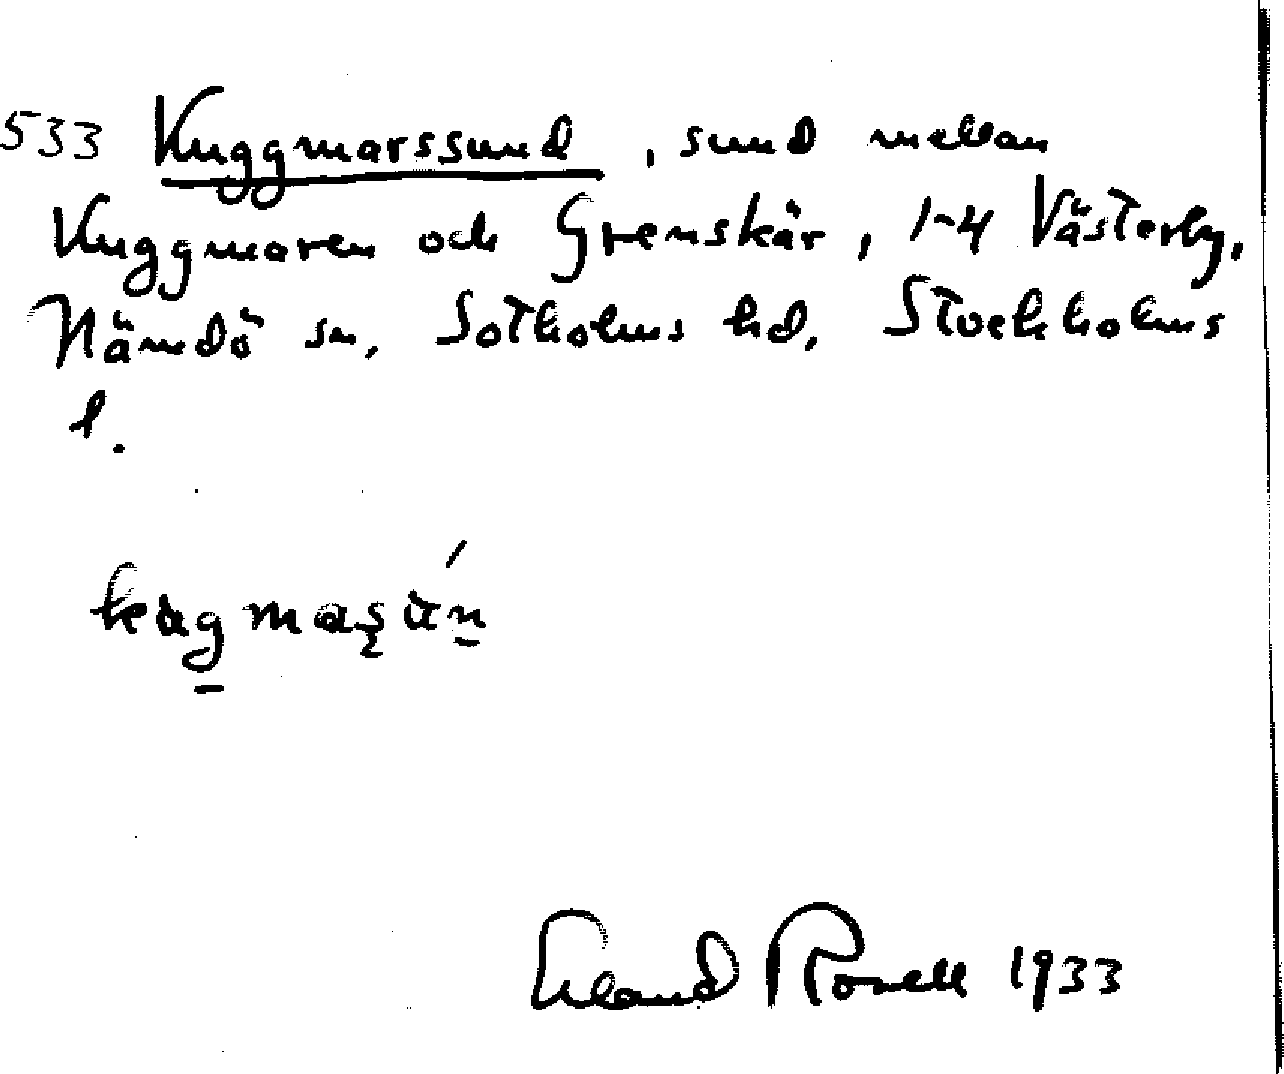 533 Kuggmarssund, sund mellan
Kuggmaren och Grenskär, 1-4 Västerby,
Nämdö sn, Sotholms hd, Stockholms
l.
Erland Rosell 1933